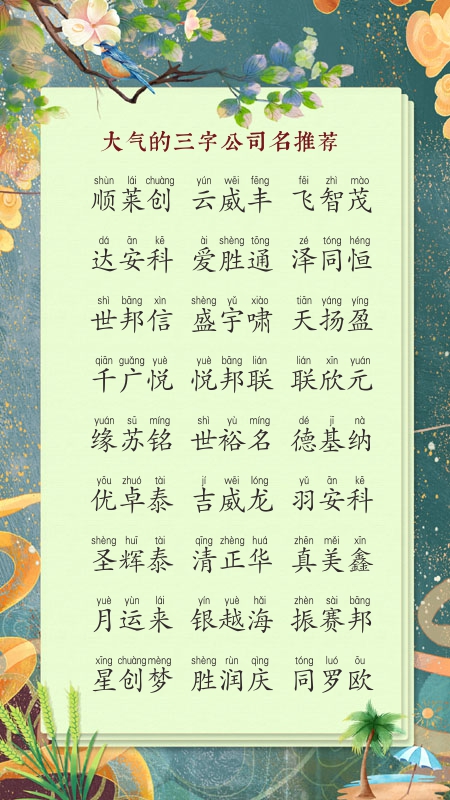 大气的三字公司名推荐
shùn lái chuàng yún wēi fēng fēi zhì mào
顺莱创 云威丰 飞智茂
dá ān kē ài shèng tōng zé tóng héng
达安科 爱胜通 泽同恒
shì bāng xìn shèng yǔ xiào tiān yáng yíng
世邦信 盛宇啸 天扬盈
qiān guǎng yuè yuè bāng lián lián xīn yuán
千广悦 悦邦联 联欣元
yuán sū míng shì yù míng dé jī nà
缘苏铭 世裕名 德基纳
yōu zhuó tài jí wēi lóng yǔ ān kē
优卓泰 吉威龙 羽安科
shèng huī tài qīng zhèng huá zhēn měi xīn
圣辉泰 清正华 真美鑫
yuè yùn lái yín yuè hǎi zhèn sài bāng
月运来 银越海 振赛邦
xīng chuàng mèng shèng rùn qìng tóng luó ōu
星创梦 胜润庆 同罗欧